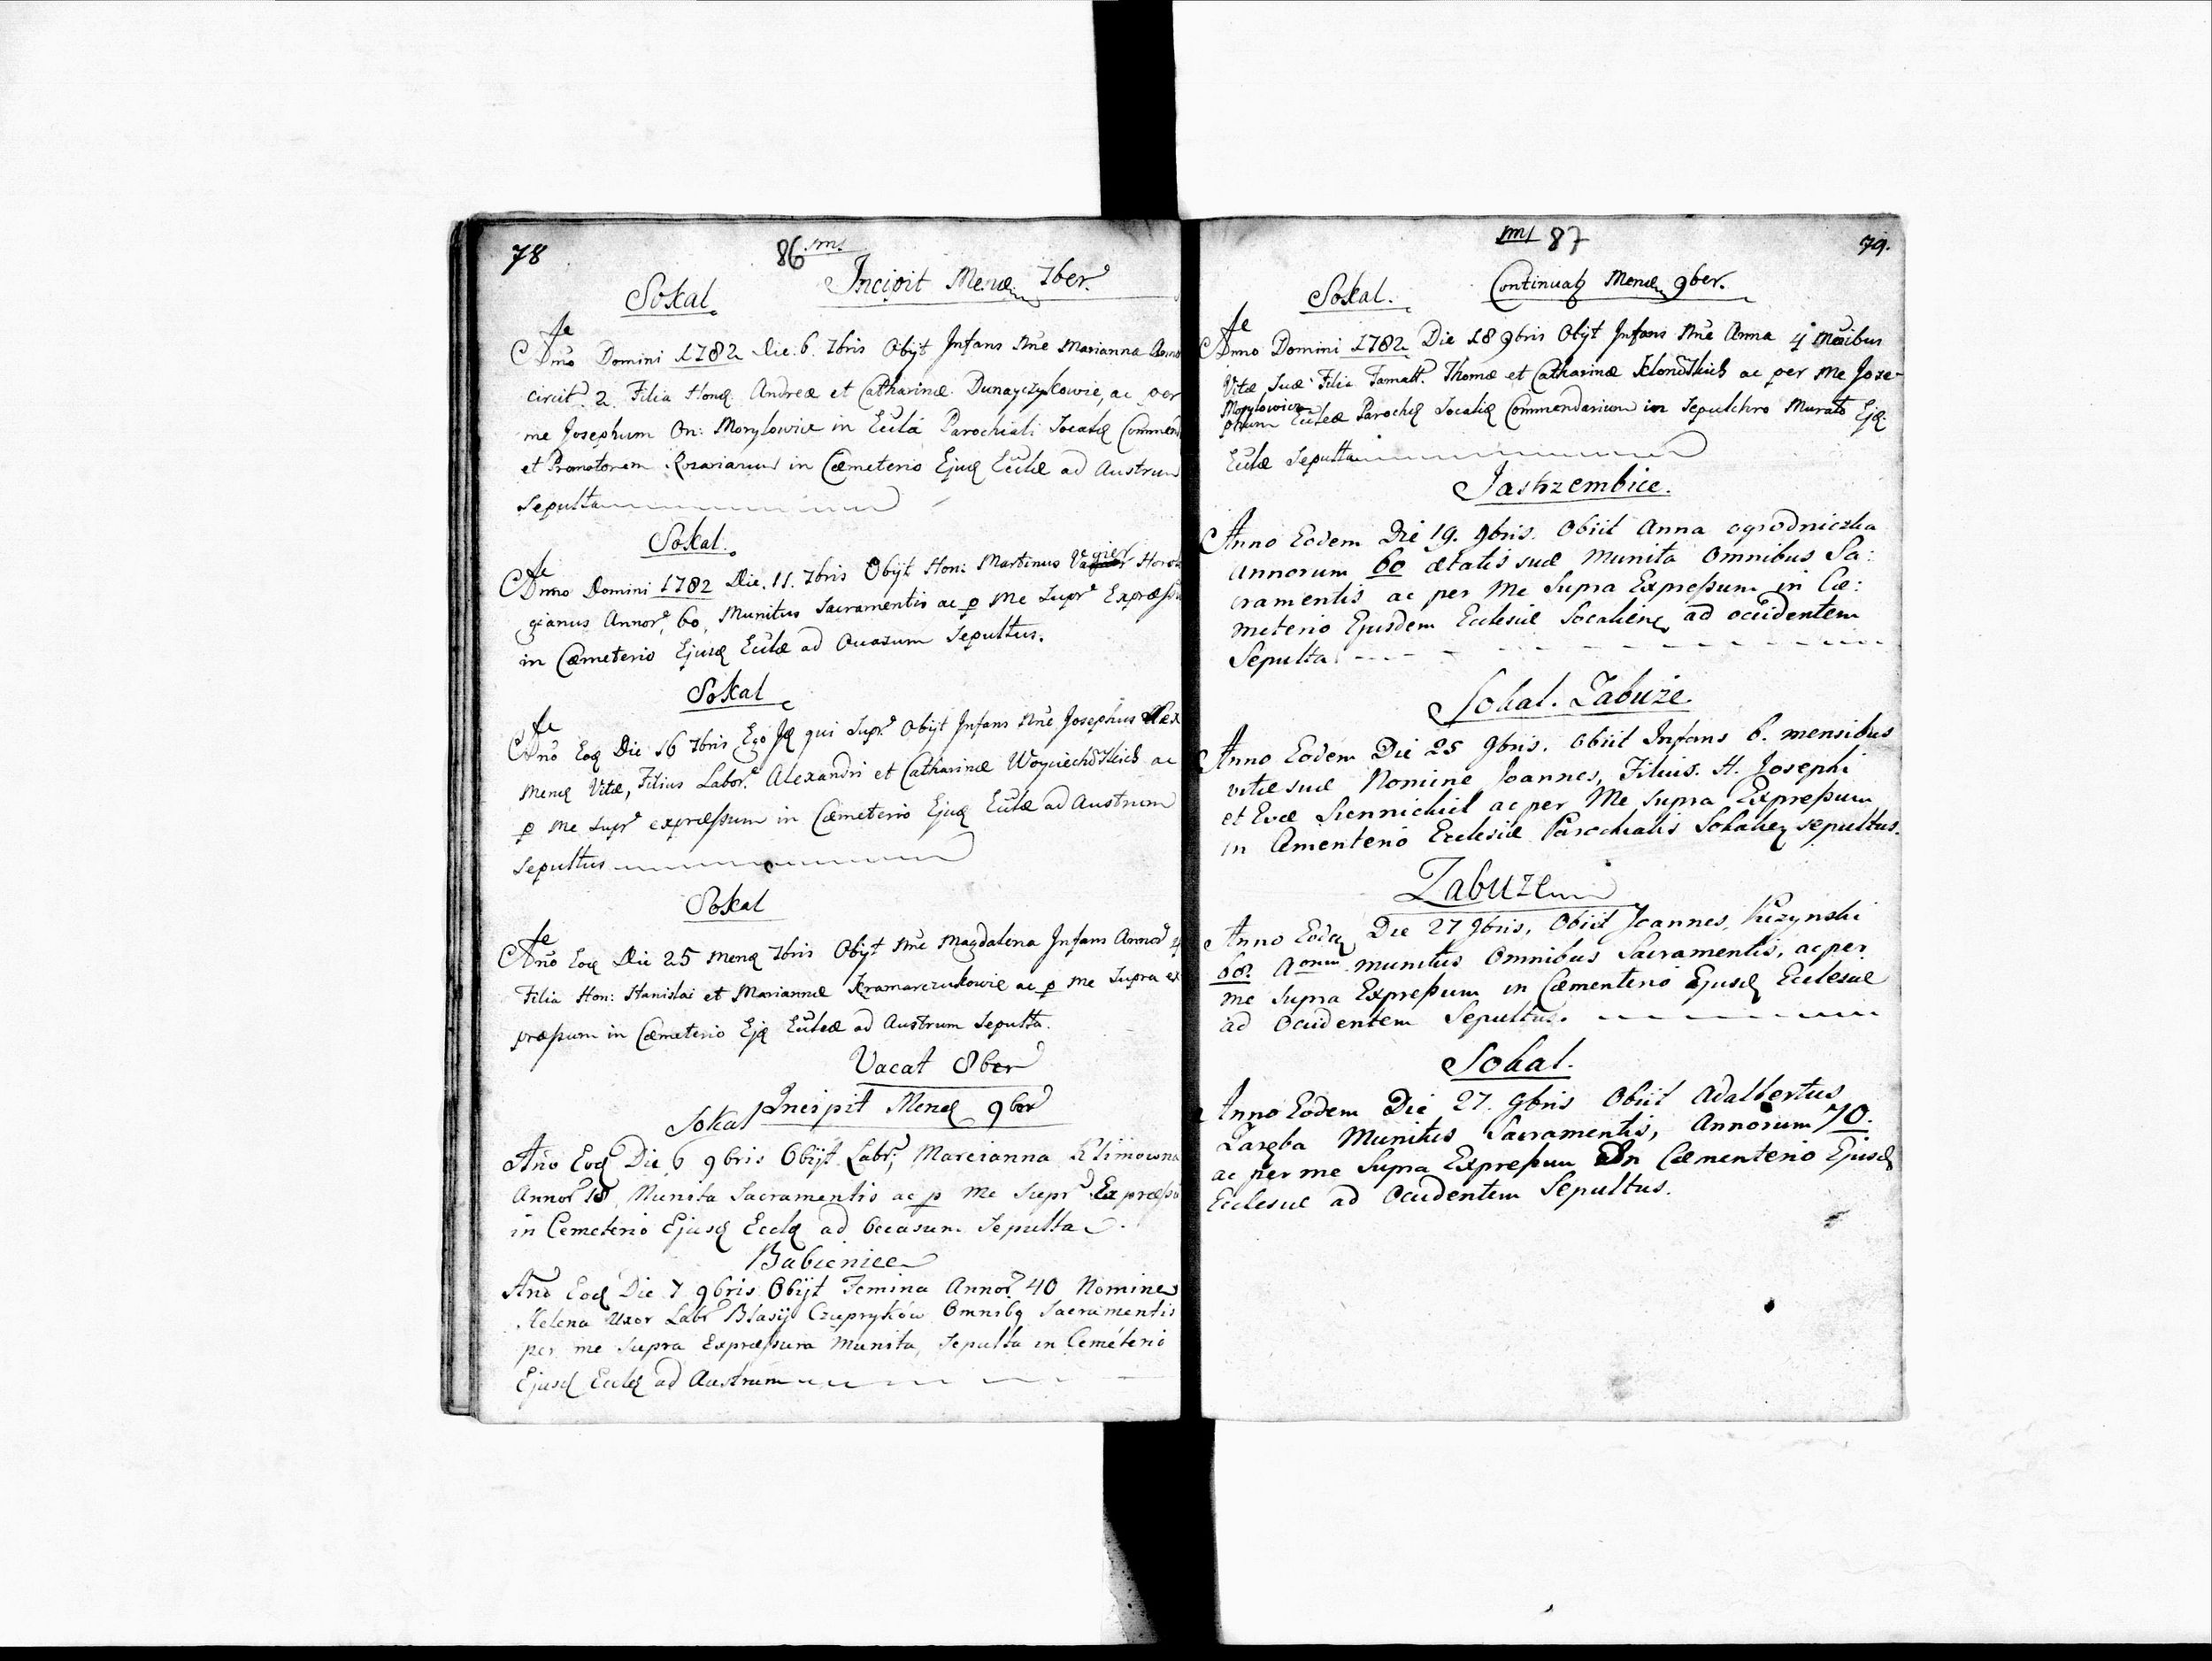 78
86 ms
Incipit Mensis 7ber.
Sokal.
Ao Domini 1782 die: 6. 7bris Obijt Infans Nne Marianna Anno
circit. 2. Filia Hong. Andreæ et Catharinæ Dunayczykowie, ac per
me Josephum On: Morylowicz in Eccla Parochiali Socalq Commen
et Promotorem Rosarianum in Cæmeterio Ejusq Ecclæ ad Austrum
Sepulta
Sokal.
Anno Domini 1782 Die. 11. 7bris Obijt Hon: Martinus Horod
gianus Annor. 60, Munitus Sacramentis ac p me Supr Expræssu
in Cæmeterio Ejusq Ecclæ ad Occasum Sepultus.
Sokal
Año Eoq Die 16 7bris Ego Iq qui Supr. Obijt Infans Nne Josephus
Menq Vitæ, Filius Labor. Alexandri et Catharinæ Woyciechowskich ac
p me Supr expræssum in Cæmeterio Ejusq Ecclæ ad Austrum
Sepultus
Sokal
Año Eoq Die 25 Menq 7bris Obijt Nne Magdalena Infans Annor 4
Filia Hon: Stanislai et Mariannæ Kramarczukowie ac p me Supra ex
præssum in Cæmeterio Ejq Eccleæ ad Austrum Sepulta.
Vacat 8ber
Incipit Menq 9ber
Sokal
Año Eoq Die 6 9bris Obijt Labr, Marcianna Klimowna
Annor 18, Munita Sacramentis ac p me Supr Expræssu
in Cemeterio Ejusq Ecclq ad Occasum Sepulta.
Babienice
Año Eoq Die 7 9bris Obijt Femina Annor. 40 Nomine
Helena Uxor Labr Blasij Czuprykow Omnibq Sacramentis
per me Supra Expræssum Munita, Sepulta in Cemeterio
Ejusq Ecclq ad Austrum
ms 87
79.
Sokal.
Continuatq Mensis 9ber.
Anno Domini 1782 Die 18 9bris Obijt Infans Nne Anna 4 Mensibus
Vitæ Suæ Filia Famatt. Thomæ et Catharinæ ac per me Jose-
Morylowicz
phum Eccleæ Parochq Socaliq Commendarium in Sepulchro Murato Ejq
Ecclæ Sepulta
Jastrzembice.
Anno Eodem Die 19. 9bris. Obiit Anna ogrodniczka
Annorum 60 ætatis suæ Munita Omnibus Sa:
cramentis ac per Me Supra Expressum in Cæ:
meterio Ejusdem Eclesiæ Socaliens ad occidentem
Sepulta.
Sokal. Zabuże.
Anno Eodem Die 25 9bris. Obiit Infans 6. mensibus
vitæ suæ Nomine Joannes, Filius. H. Josephi
et Evæ Siennickich ac per Me Supra Expressum
in Cæmenterio Ecclesiæ Parochialis Sokalien sepultus.
Zabuze
Anno Eodeq Die 27 9bris, Obiit Joannes,
60. Aorum munitus Omnibus Sacramentis, ac per
me Supra Expressum in Cæmenterio Ejusdq Ecclesiæ
ad Occidentem Sepultus.
Sokal.
Anno Eodem Die 27. 9bris Obiit Adalbertus
Zaręba Munitus Sacramentis, Annorum 70.
ac per me Supra Expressum In Cæmenterio Ejusdq
Ecclesiæ ad Occidentem Sepultus.